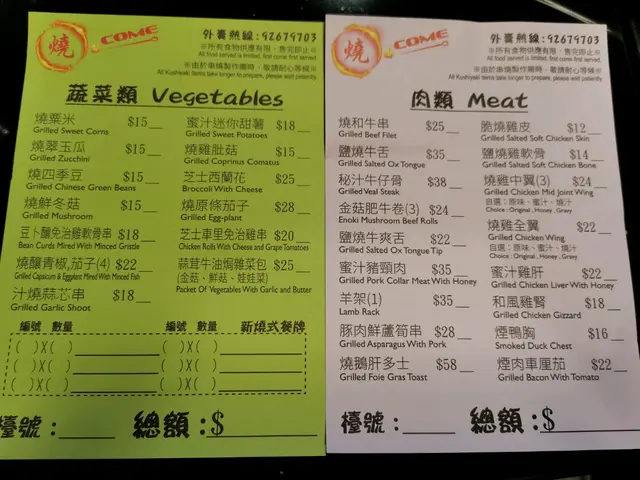 燒
.COME
外賣熱線:92679703
※所有食物供應有限,售完即止※
All food served is limited, first come first served.
※由於串燒製作需時、敬請耐心等候※
All Kushiyaki items take longer to prepare, please wait patiently.
蔬菜類 Vegetables
燒粟米 $15
Grilled Sweet Corns
燒翠玉瓜 $15
Grilled Zucchini
燒四季豆 $15
Grilled Chinese Green Beans
燒鮮冬菇 $15
Grilled Mushroom
豆卜釀免治雞軟骨串 $18
Bean Curds Mired With Minced Gristle
燒釀青椒,茄子(4) $22
Grilled Capsicum & Eggplant Mired With Minced Fish
汁燒蒜芯串 $18
Grilled Garlic Shoot
蜜汁迷你甜薯 $18
Grilled Sweet Potatoes
燒雞肶菇 $15
Grilled Coprinus Comatus
芝士西蘭花 $25
Broccoli With Cheese
燒原條茄子 $28
Grilled Egg-plant
芝士車里免治雞串 $20
Chicken Rolls With Cheese and Grape Tomatoes
蒜茸牛油焗雜菜包 $25
(金菇、鮮菇、娃娃菜)
Packet Of Vegetables With Garlic and Butter
編號 數量 編號 數量 新燒式餐牌
( )X( ) ( )X( )
( )X( ) ( )X( )
( )X( ) ( )X( )
檯號: 總額:$
燒
.COME
外賣熱線:92679703
※所有食物供應有限、售完即止※
All food served is limited, first come first served.
※由於串燒製作需時、敬請耐心等候※
All Kushiyaki items take longer to prepare, please wait patiently.
肉類 Meat
燒和牛串 $25
Grilled Beef Filet
鹽燒牛舌 $35
Grilled Salted Ox Tongue
秘汁牛仔骨 $38
Grilled Veal Steak
金菇肥牛卷(3) $24
Enoki Mushroom Beef Rolls
鹽燒牛爽舌 $22
Grilled Salted Ox Tongue Tip
蜜汁豬頸肉 $35
Grilled Pork Collar Meat With Honey
羊架(1) $35
Lamb Rack
豚肉鮮蘆筍串 $28
Grilled Asparagus With Pork
燒鵝肝多士 $58
Grilled Foie Gras Toast
脆燒雞皮 $12
Grilled Salted Soft Chicken Skin
鹽燒雞軟骨 $14
Grilled Salted Soft Chicken Bone
燒雞中翼(3) $24
Grilled Chicken Mid Joint Wing
自選:原味、蜜汁、燒汁
Choice : Original , Honey , Gravy
燒雞全翼 $22
Grilled Chicken Wing
自選:原味、蜜汁、燒汁
Choice : Original , Honey , Gravy
蜜汁雞肝 $22
Grilled Chicken Liver With Honey
和風雞腎 $18
Grilled Chicken Gizzard
煙鴨胸 $16
Smoked Duck Chest
煙肉車厘茄 $22
Grilled Bacon With Tomato
檯號: 總額:$